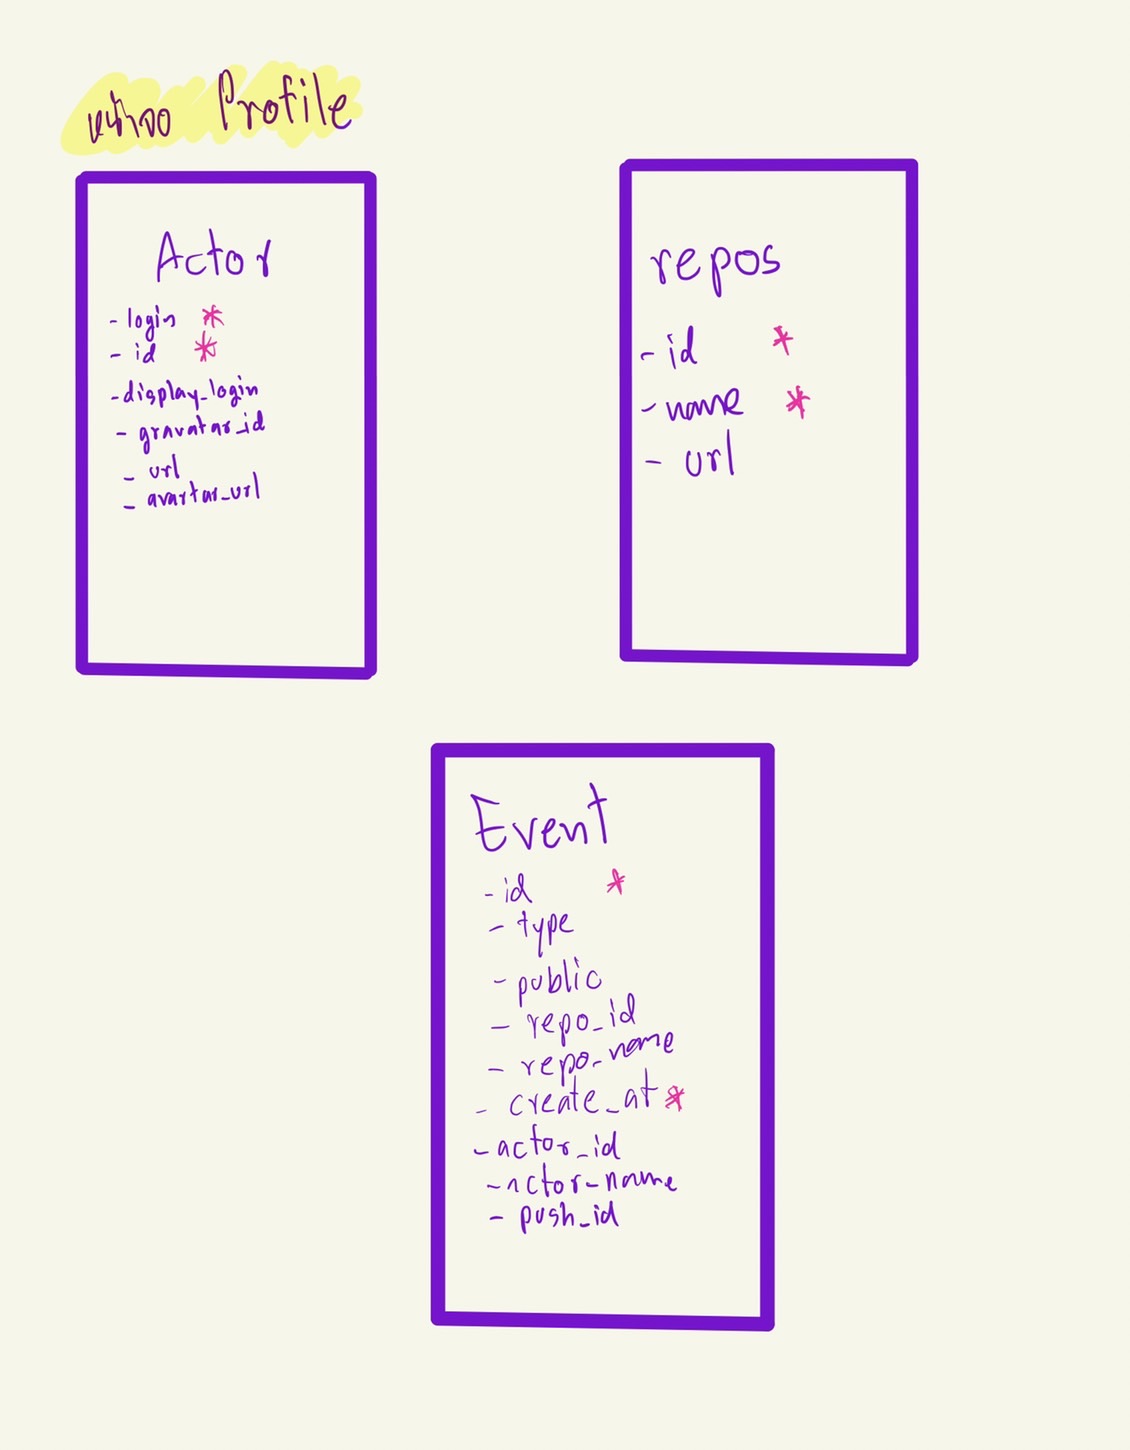 หน้าจอ Profile
Actor
- login *
- id *
- display_login
- gravatar_id
- url
- avartar_url
repos
- id *
- name *
- url
Event
- id *
- type
- public
- repo_id
- repo_name
- create_at *
- actor_id
- actor_name
- push_id